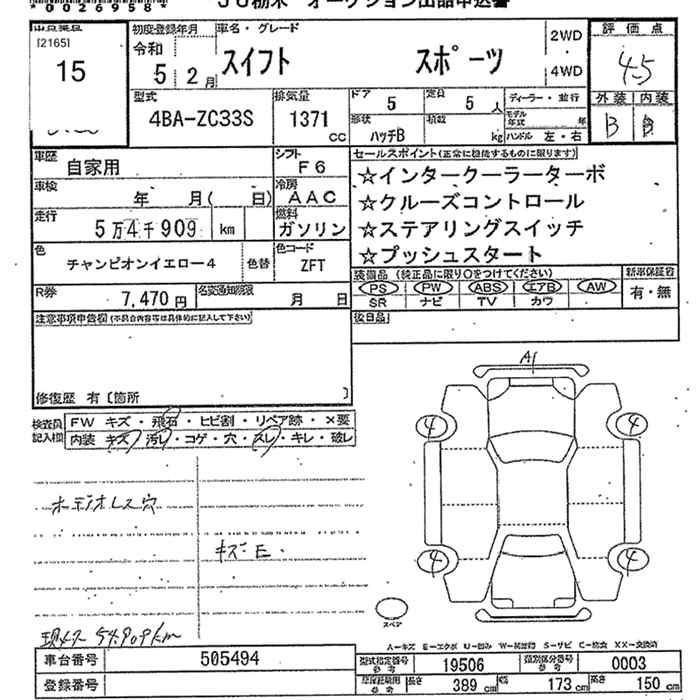 *0026958*
JU栃木 オークション出品申込書
[2165]
15
初度登録年月
令和
5 2月
車名・グレード
スイフト スポーツ
2WD
4WD
評価点
4.5
外装 内装
B B
型式
4BA-ZC33S
排気量
1371
cc
ドア
5
定員
5人
形状
ハッチB
積載
kg
ディーラー・並行
モデル年式 年
ハンドル 左・右
車歴
自家用
シフト
F6
車検
年 月( 日)
冷房
AAC
走行
5万4千909 km
燃料
ガソリン
色
チャンピオンイエロー4
色替
色コード
ZFT
R券
7,470円
名変通知期限
月 日
セールスポイント(正常に機能するものに限ります)
☆インタークーラーターボ
☆クルーズコントロール
☆ステアリングスイッチ
☆プッシュスタート
装備品 (純正品に限り○をつけてください)
PS PW ABS エアB AW
SR ナビ TV カワ
新車保証書
有・無
注意事項申告欄(不具合内容等は具体的に記入して下さい)
後日品
修復歴 有〔箇所 〕
検査員記入欄
FW キズ・飛石・ヒビ割・リペア跡・×要
内装 キズ・汚レ・コゲ・穴・スレ・キレ・破レ
A1
4 4
4 4
キズE.
現メーター 54909km
スペア
A-キズ E-エクボ U-凹み W-補修跡 S-サビ C-腐食 XX-交換済
車台番号
505494
登録番号
型式指定番号 参考
19506
類別区分番号 参考
0003
長さ
389 cm
幅
173 cm
高さ
150 cm